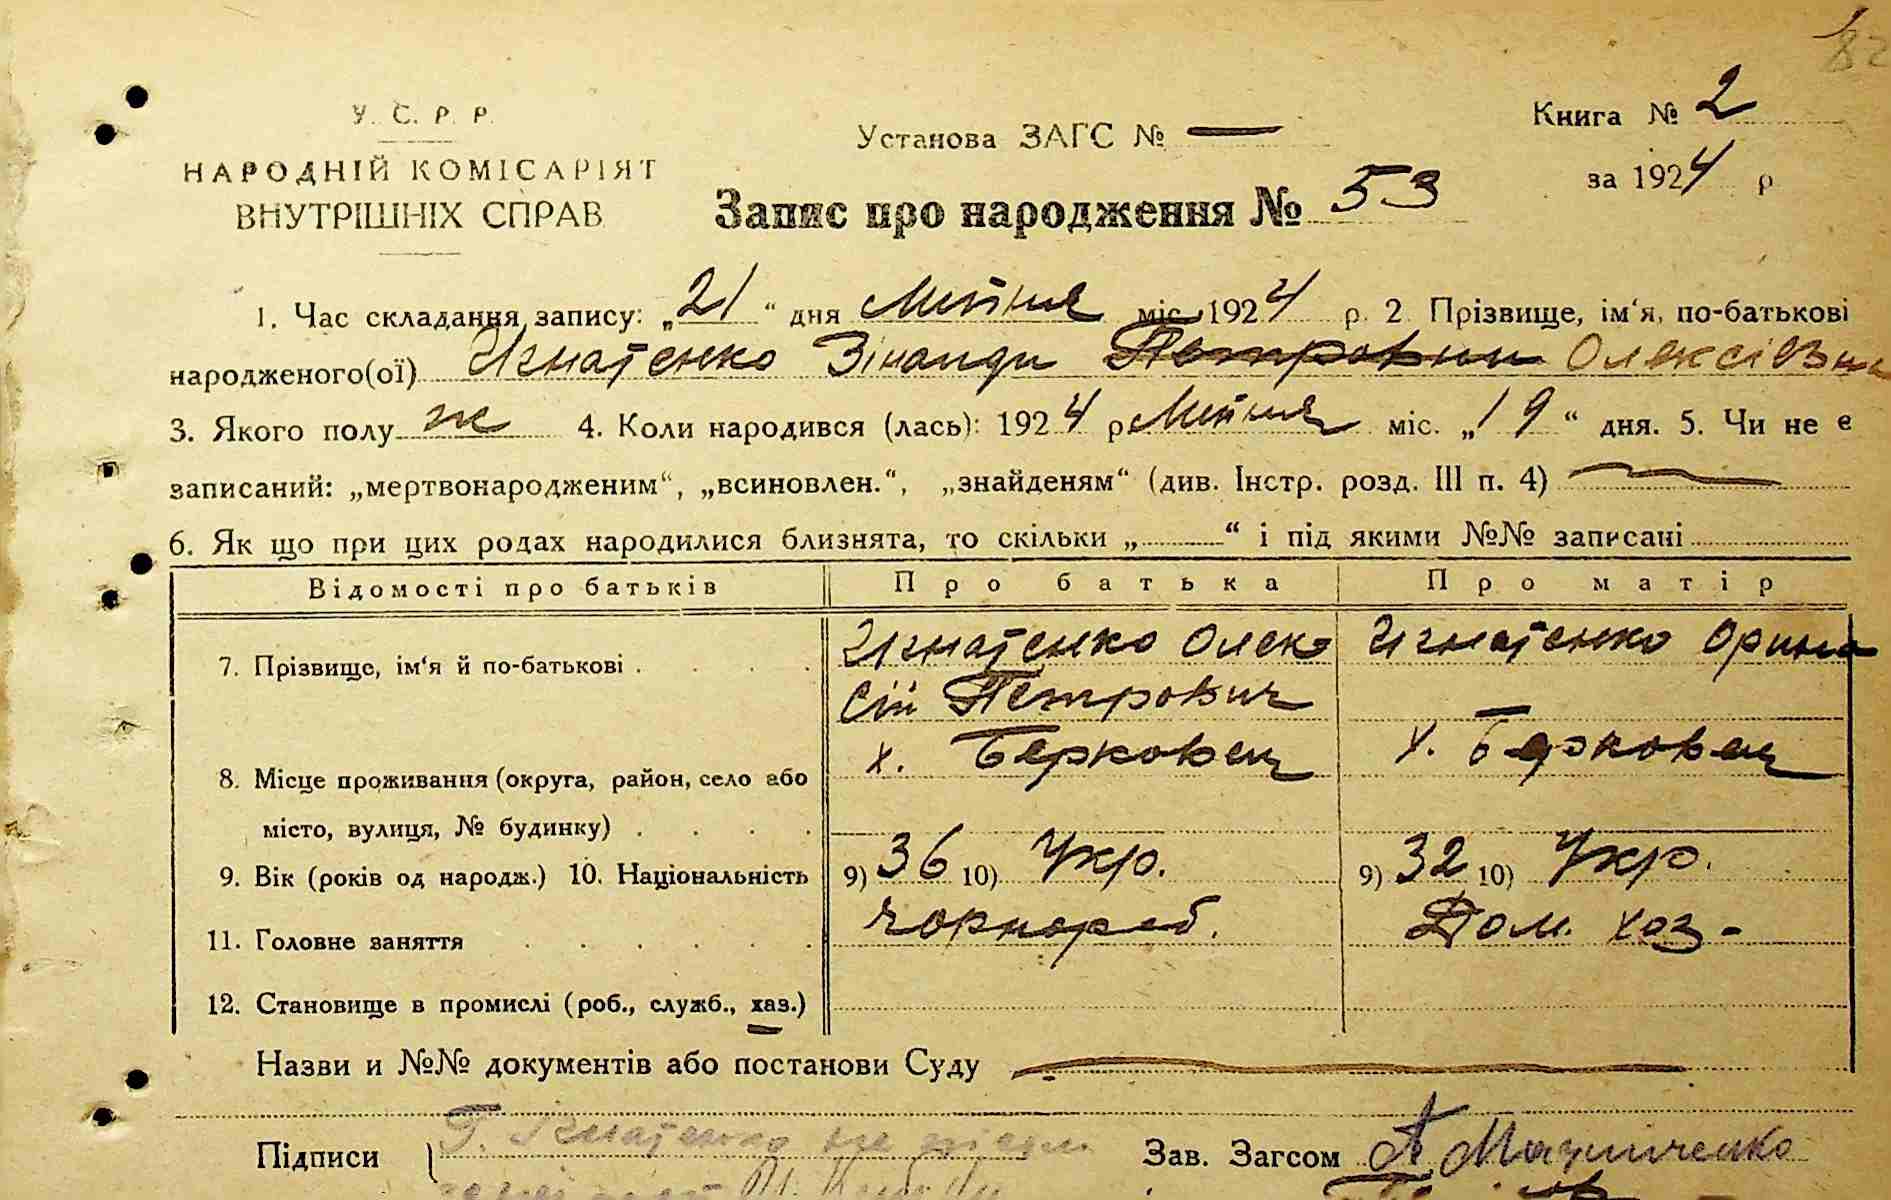 82
У. С. Р. Р.
НАРОДНІЙ КОМІСАРІЯТ
ВНУТРІШНІХ СПРАВ
Установа ЗАГС № —
Книга № 2
за 1924 р
Запис про народження № 53
1. Час складання запису: „21“ дня Липня міс. 1924 р. 2 Прізвище, ім‘я, по-батькові
народженого(ої) Игнатенко Зінаиди Петровни Олексіевна
3. Якого полу ж 4. Коли народився (лась): 1924 р. Липня міс. „19“ дня. 5. Чи не є
записаний: „мертвонародженим“, „всиновлен.“, „знайденям“ (див. Інстр. розд. III п. 4)
6. Як що при цих родах народилися близнята, то скільки „ “ і під якими №№ записані
Відомості про батьків Про батька Про матір
7. Прізвище, ім‘я й по-батькові Игнатенко Олек- Игнатенко Орина
сій Петрович
х. Берковец х. Берковец
8. Місце проживання (округа, район, село або
місто, вулиця, № будинку)
9. Вік (років од народж.) 10. Національність 9) 36 10) Укр. 9) 32 10) Укр.
11. Головне заняття чорнораб. Дом. хоз-
12. Становище в промислі (роб., служб., хаз.)
Назви и №№ документів або постанови Суду
Підписи Г. Ігнатенко Зав. Загсом